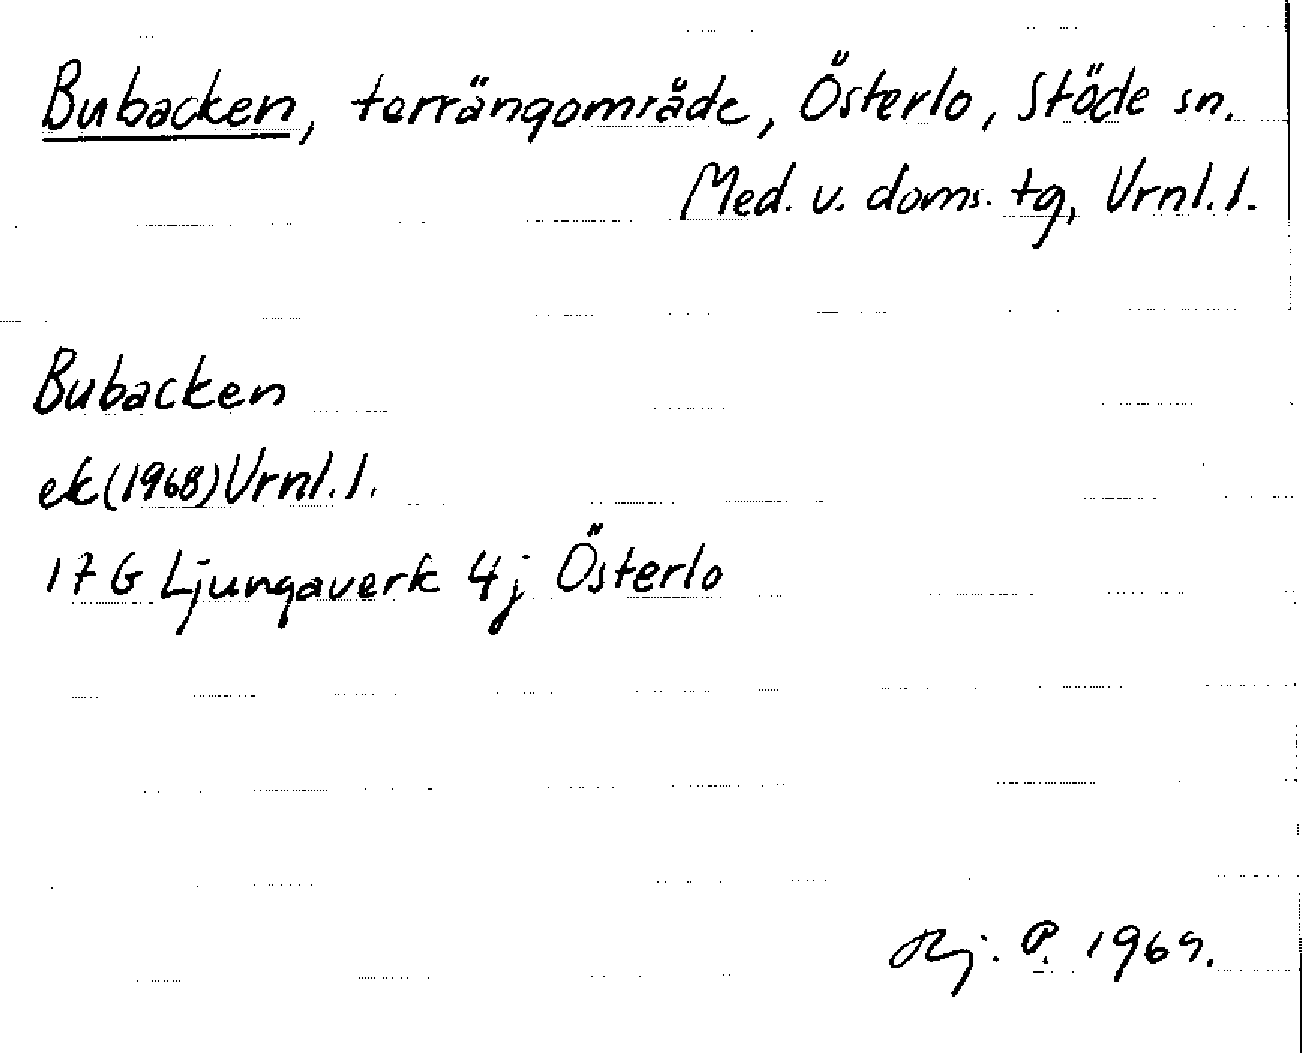 Bubacken, terrängområde, Österlo, Stöde sn.
Med. v. doms. tg, Vrnl. l.
Bubacken
ek (1968) Vrnl. l.
17 G Ljungaverk 4j Österlo
P. 1969.